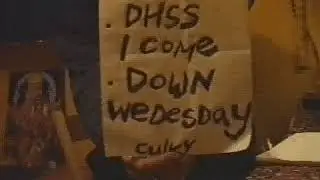 . DHSS
I COME
. DOWN
WEDESDAY